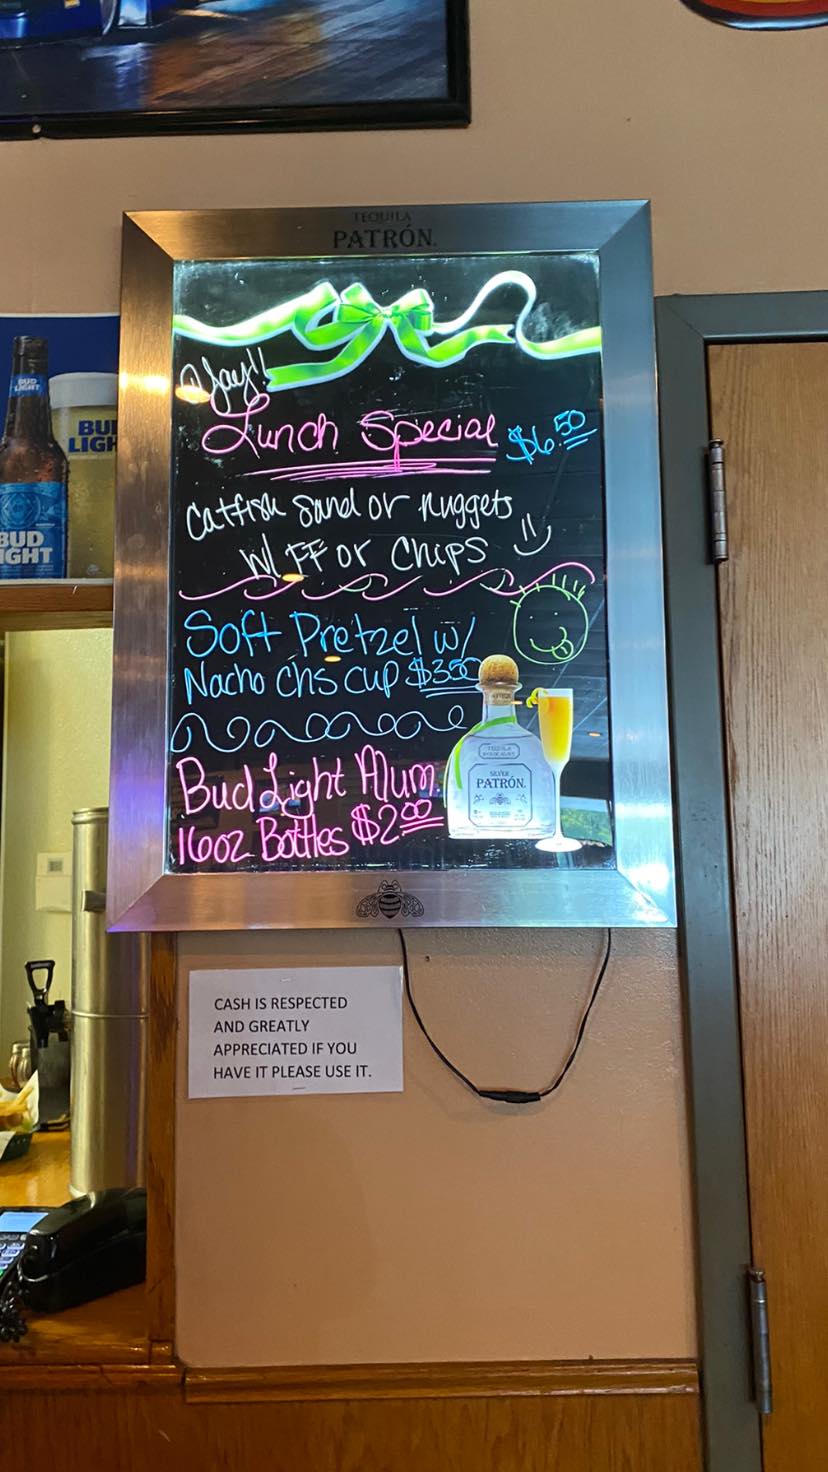 TEQUILA
PATRÓN.
Yay!!
Lunch Special $6.50
Catfish Sand or Nuggets
W/ FF or Chips
Soft Pretzel w/
Nacho chs cup $3.50
Bud Light Alum.
16oz Bottles $2.00
SILVER
PATRÓN.
BUD
LIGHT
BUD
LIGH
BUD
IGHT
CASH IS RESPECTED
AND GREATLY
APPRECIATED IF YOU
HAVE IT PLEASE USE IT.